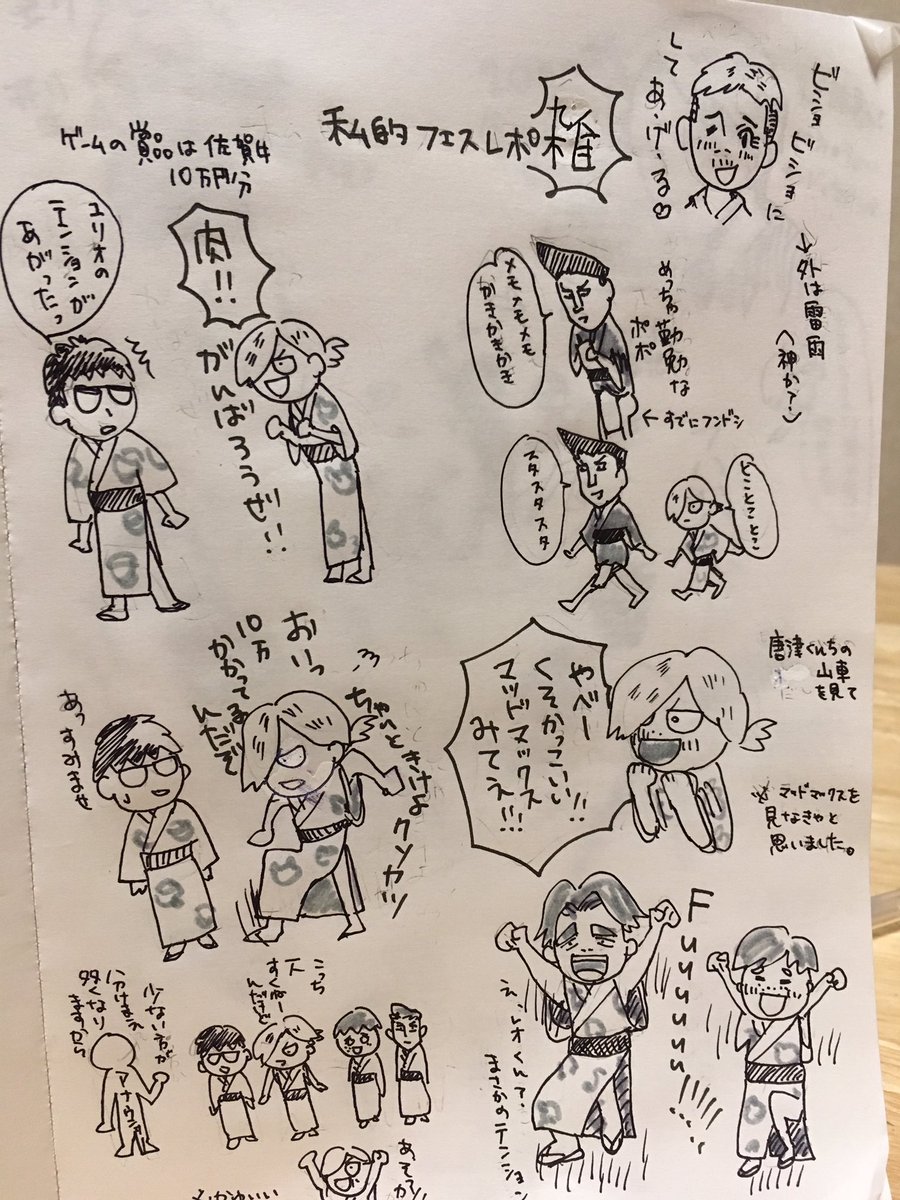 私的フェスレポ
雑
ビショビショに
してあげーる♡
↓外は雷雨
(神か?)
ゲームの賞品は佐賀牛
10万円分
肉!!
がんばろうぜ!!
ユリオの
テンションが
あがったっ
めっちゃ勤勉な
ポポ
メモメモメモ
かきかきかき
←すでにフンドシ
スタスタスタ
とことことこ
唐津くんちの
山車
を見て
やべー
くそかっこいい!!
マッドマックス
みてえ!!!
マッドマックスを
見なきゃと
思いました。
おいっ
10万
かかってる
んだぞ
ちゃんときけよクソカツ
あっすみませ
Fuuuuuu!!!
え、レオくんて・
まさかのテンション
こっち
人
すくねー
んだけど
少ない方が
分けまえ
多くなり
ますから
アナウンサー